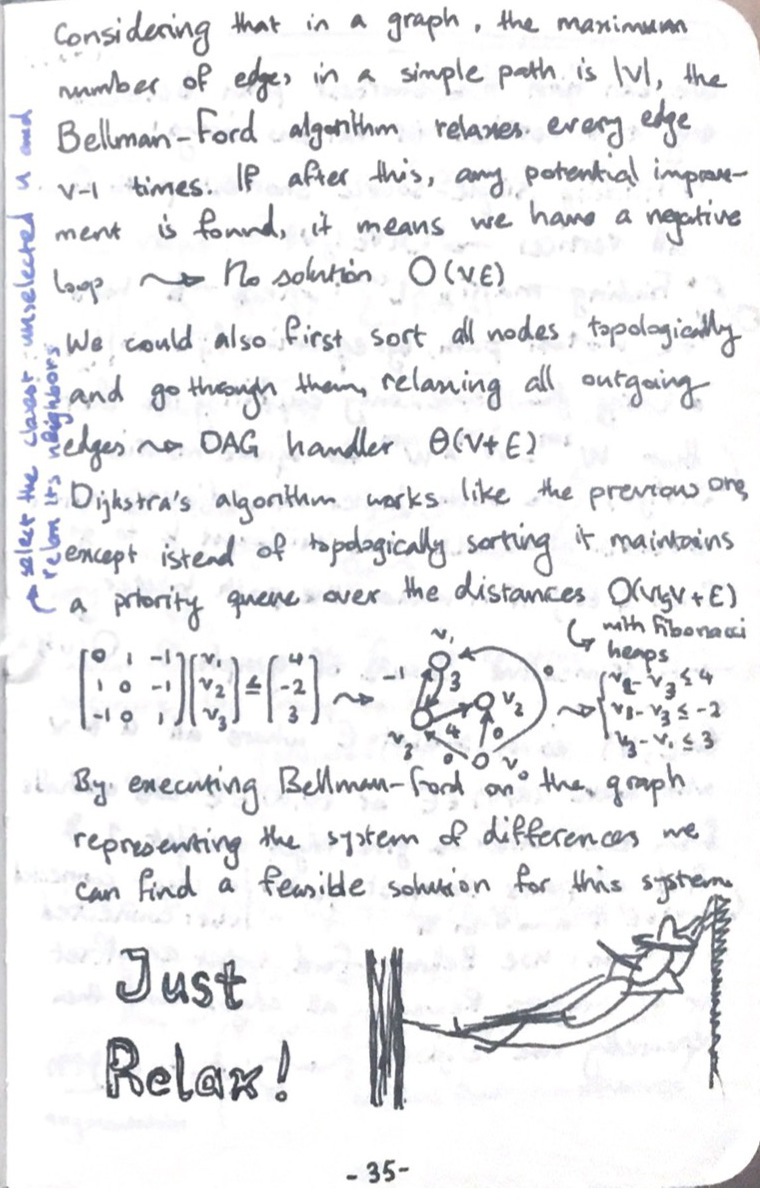 Considering that in a graph, the maximum
number of edges in a simple path is |V|, the
Bellman-Ford algorithm relaxes every edge
V-1 times. If after this, any potential improve-
ment is found, it means we have a negative
loop ⇝ No solution O(VE)
We could also first sort all nodes topologically
and go through them, relaxing all outgoing
edges ⇝ DAG handler Θ(V+E)
select the closest unselected u and
relax its neighbors
Dijkstra's algorithm works like the previous one,
except istead of topologically sorting it maintains
a priority queue over the distances O(VlgV+E)
with Fibonacci
heaps
[0 1 -1] [v₁] ≤ [4] ⇝
[1 0 -1] [v₂] [-2]
[-1 0 1] [v₃] [3]
v₁
-1 3 0
v₂
v₃ 4 0
0 v₀
⇝ { v₂-v₃ ≤ 4
v₁-v₃ ≤ -2
v₃-v₁ ≤ 3
By executing Bellman-Ford on the graph
representing the system of differences we
can find a feasible solution for this system
Just
Relax!
-35-